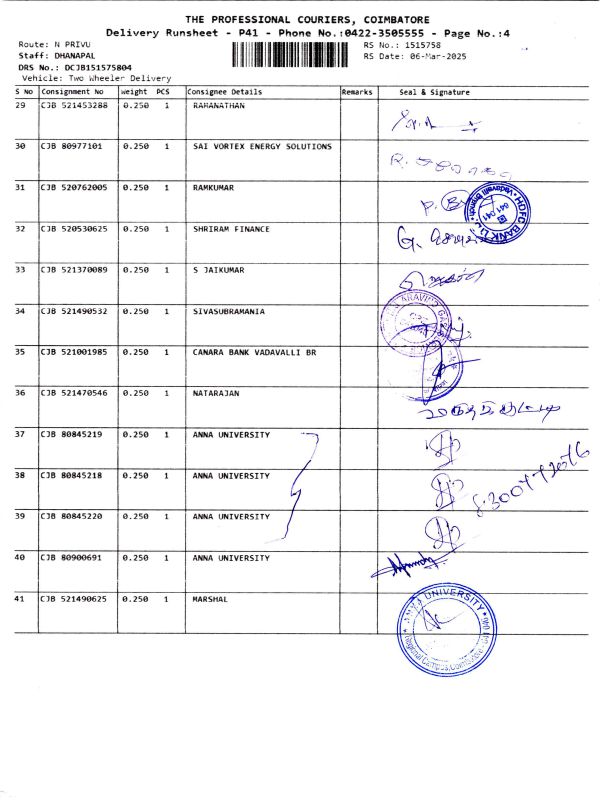 THE PROFESSIONAL COURIERS, COIMBATORE
Delivery Runsheet - P41 - Phone No.:0422-3505555 - Page No.:4
Route: N PRIVU RS No.: 1515758
Staff: DHANAPAL RS Date: 06-Mar-2025
DRS No.: DCJB151575804
Vehicle: Two Wheeler Delivery
S No Consignment No Weight PCS Consignee Details Remarks Seal & Signature
29 CJB 521453288 0.250 1 RAMANATHAN
30 CJB 80977101 0.250 1 SAI VORTEX ENERGY SOLUTIONS
31 CJB 520762005 0.250 1 RAMKUMAR
HDFC BANK Vadavalli Branch 641 041
32 CJB 520530625 0.250 1 SHRIRAM FINANCE
33 CJB 521370089 0.250 1 S JAIKUMAR
34 CJB 521490532 0.250 1 SIVASUBRAMANIA
35 CJB 521001985 0.250 1 CANARA BANK VADAVALLI BR
36 CJB 521470546 0.250 1 NATARAJAN
37 CJB 80845219 0.250 1 ANNA UNIVERSITY
38 CJB 80845218 0.250 1 ANNA UNIVERSITY
39 CJB 80845220 0.250 1 ANNA UNIVERSITY
40 CJB 80900691 0.250 1 ANNA UNIVERSITY
41 CJB 521490625 0.250 1 MARSHAL
ANNA UNIVERSITY Regional Campus, Coimbatore